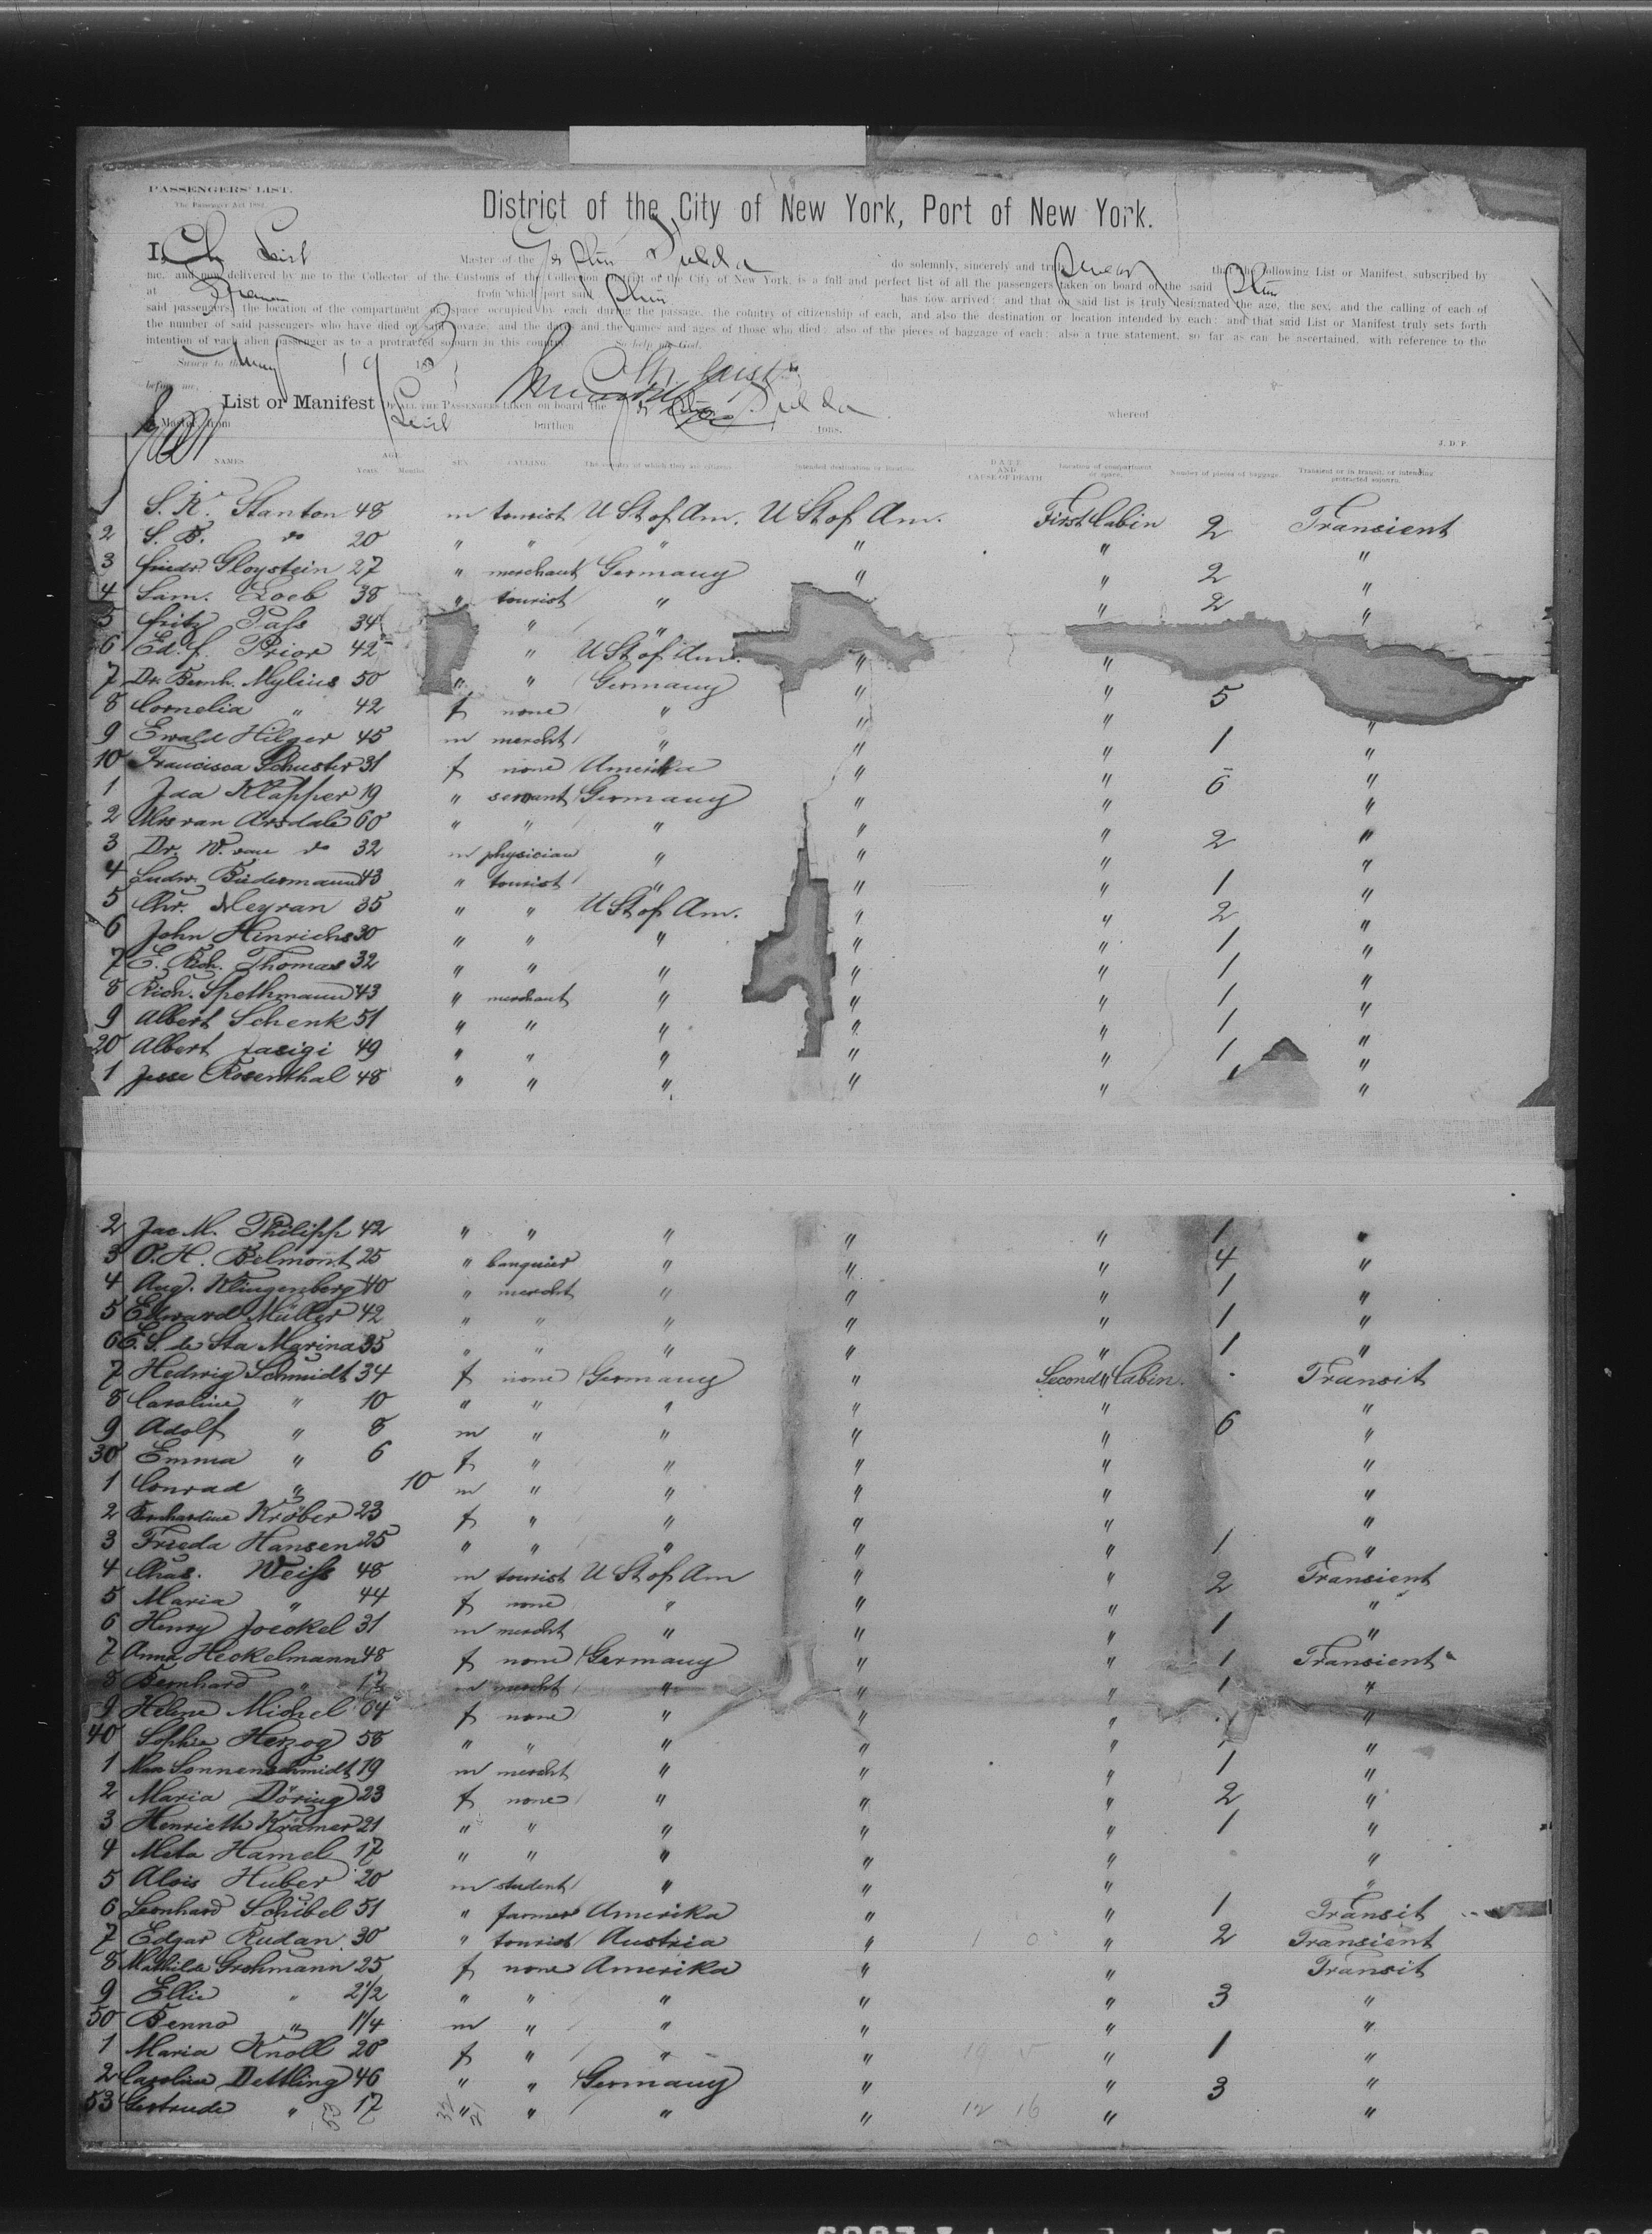 PASSENGERS' LIST.
The Passenger Act 1882.
District of the City of New York, Port of New York.
I, Ch Leist Master of the Ger Stm Fulda do solemnly, sincerely and truly swear that the following List or Manifest, subscribed by
me, and now delivered by me to the Collector of the Customs of the Collection District of the City of New York, is a full and perfect list of all the passengers taken on board of the said Stm
at Bremen from which port said Stm has now arrived; and that on said list is truly designated the age, the sex, and the calling of each of
said passengers, the location of the compartment or space occupied by each during the passage, the country of citizenship of each, and also the destination or location intended by each; and that said List or Manifest truly sets forth
the number of said passengers who have died on said voyage, and the dates and the names and ages of those who died; also of the pieces of baggage of each; also a true statement, so far as can be ascertained, with reference to the
intention of each alien passenger as to a protracted sojourn in this country. So help me God.
Sworn to this May 19 189
before me, Ch Leist
List or Manifest OF ALL THE PASSENGERS taken on board the Ger Stm Fulda whereof
Leist is Master, from burthen tons.
J. D. P.
NAMES AGE Years Months SEX CALLING The country of which they are citizens Intended destination or location DATE AND CAUSE OF DEATH Location of compartment or space Number of pieces of baggage Transient or in transit, or intending protracted sojourn.
1 S. R. Stanton 48 m tourist U St of Am. U St of Am. First Cabin 2 Transient
2 S. B. do 20 " " " " " "
3 Friedr. Gloystein 27 " merchant Germany " " 2 "
4 Sam. Loeb 38 " tourist " " 2 "
5 Fritz Pass 34 " "
6 Ed. f. Prior 42 " U St of Am. " "
7 Dr. Bernh. Mylius 50 " " Germany " " 5
8 Cornelia " 42 f none " " " "
9 Ewald Hilger 45 m mercht " " " 1 "
10 Francisca Schuster 31 f none Amerika " " 6 "
1 Ida Klapper 19 " servant Germany " " "
2 Mrs van Arsdale 60 " " " " " 2 "
3 Dr. W. van do 32 m physician " " " "
4 Ludw. Biedermann 43 " tourist " " " 1 "
5 Chr. Meyran 35 " " U St of Am. " " 2 "
6 John Hinrichs 30 " " " " " 1 "
7 E. Rich. Thomas 32 " " " " " 1 "
8 Rich. Spethmann 43 " merchant " " " 1 "
9 Albert Schenk 51 " " " " " 1 "
20 Albert Jasigi 49 " " " " " 1 "
1 Jesse Rosenthal 48 " " " " " 1 "
2 Jac M. Philipp 42 " " " " " 1 "
3 O. H. Belmont 25 " banquier " " " 4 "
4 Aug. Klingenberg 40 " mercht " " " 1 "
5 Edward Müller 42 " " " " " 1 "
6 E. S. de Sta Marina 35 " " " " " 1 "
7 Hedwig Schmidt 34 f none Germany " Second Cabin Transit
8 Caroline " 10 " " " " " "
9 Adolf " 8 m " " " " 6 "
30 Emma " 6 f " " " " "
1 Conrad " 10 m " " " " "
2 Kröber 23 f " " " " "
3 Frieda Hansen 25 " " " " " 1 "
4 Chas. Weiss 48 m tourist U St of Am " " 2 Transient
5 Maria " 44 f none " " " "
6 Henry Joeckel 31 m mercht " " " 1 "
7 Anna Heckelmann 48 f none Germany " " 1 Transient
8 Bernhard " 17 m mercht " " " 1 "
9 Helene Michel 64 f none " " " 1 "
40 Sophie Herzog 58 " " " " " 1 "
1 Max Sonnenschmidt 19 m mercht " " " 1 "
2 Maria Döring 23 f none " " " 2 "
3 Henriette Krämer 21 " " " " " 1 "
4 Meta Hamel 17 " " " " " "
5 Alois Huber 20 m student " " " "
6 Leonhard Schibel 51 " farmer Amerika " " 1 Transit
7 Edgar Rudan 30 " tourist Austria " 1 0 " 2 Transient
8 Mathilde Grohmann 25 f none Amerika " " Transit
9 Ellie " 2 1/2 " " " " " 3 "
50 Benno " 1/4 m " " " " "
1 Maria Knoll 20 f " " " 19 " 1 "
2 Caroline Dettling 46 " " Germany " " 3 "
53 Gertrude " 17 " " " " 12 16 " "